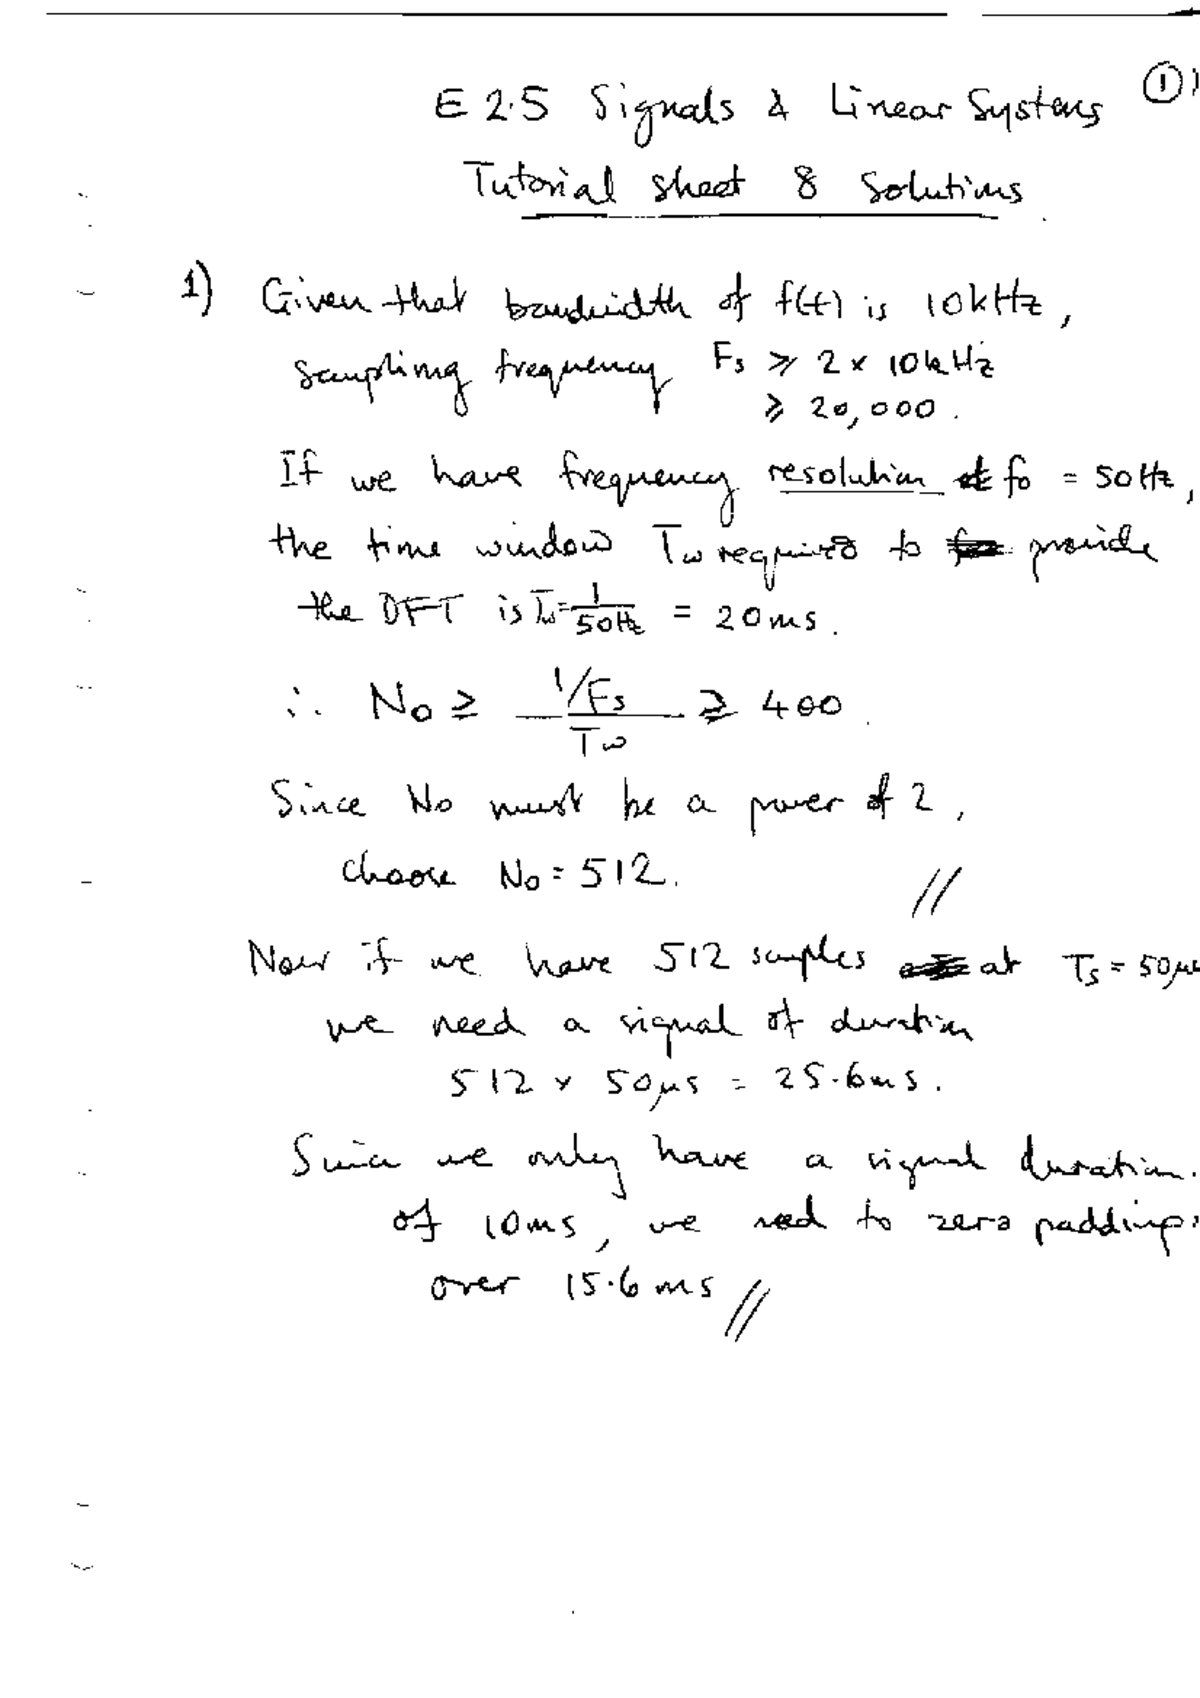 ①
E 2.5 Signals & Linear Systems
Tutorial sheet 8 Solutions
1) Given that bandwidth of f(t) is 10kHz,
sampling frequency Fs ⩾ 2 × 10kHz
⩾ 20,000.
If we have frequency resolution of f0 = 50Hz,
the time window Tw required to provide
the DFT is Tw = 1/50Hz = 20ms.
∴ No ≥ (1/Fs)/Tw ≥ 400.
Since No must be a power of 2,
choose No = 512. //
Now if we have 512 samples at Ts = 50μ
we need a signal of duration
512 × 50μs = 25.6ms.
Since we only have a signal duration
of 10ms, we need to zero padding
over 15.6 ms //